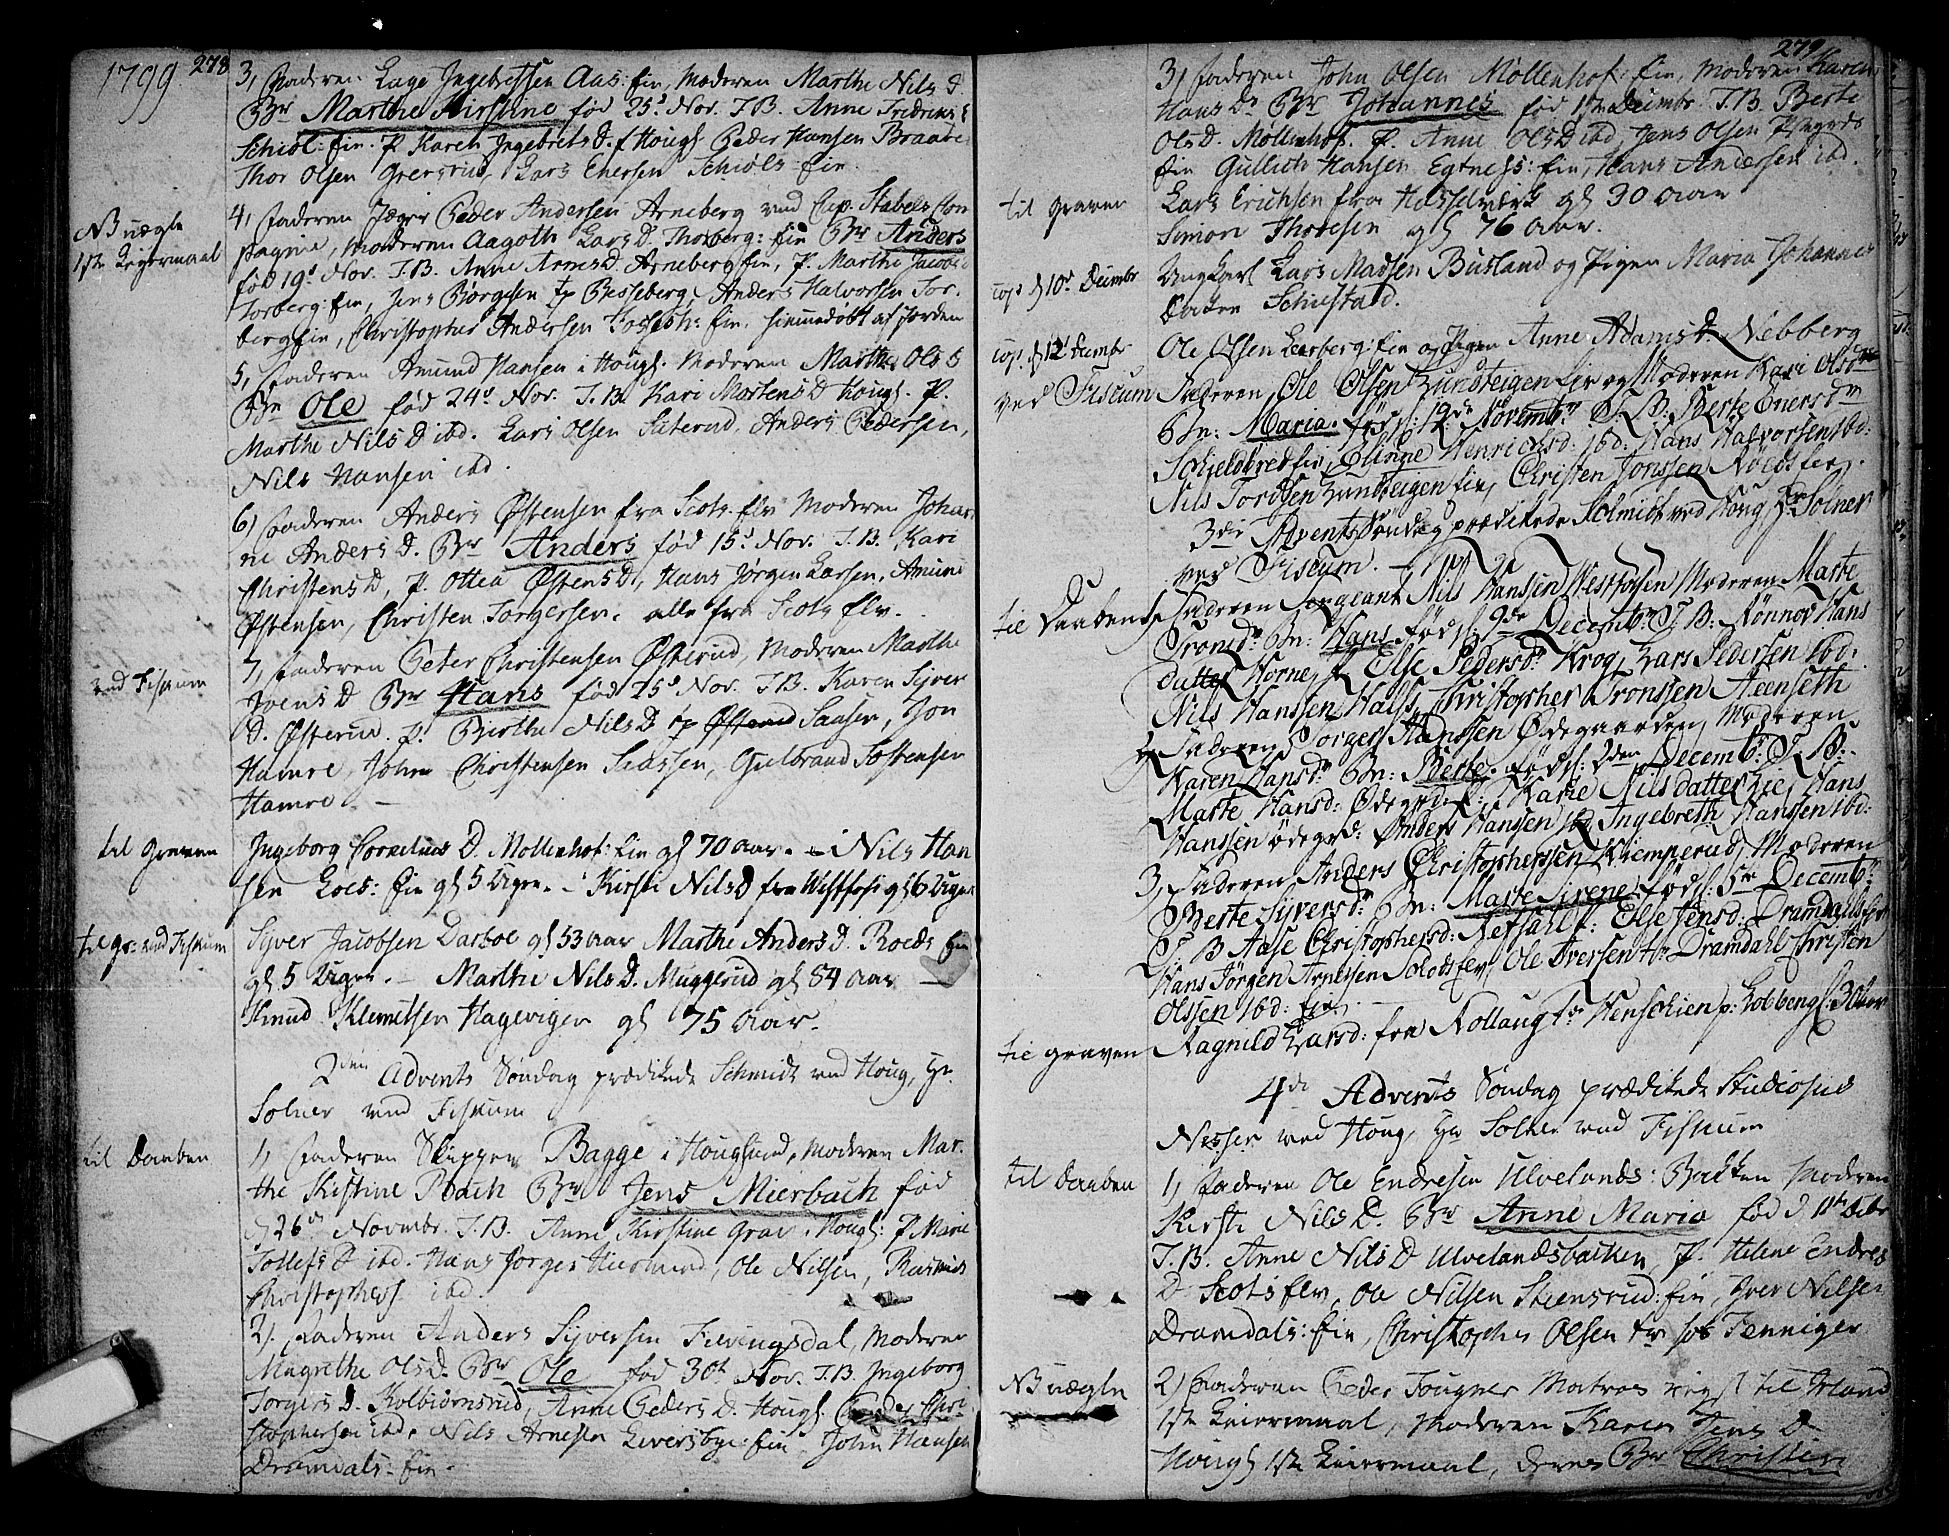 1799. 278
3, Faderen Lage Ingebretsen Aas: ein, Moderen Marthe Nils D.
Br Marthe Kirstine fød 25d Nov. T.B. Anne Fredriks
Schiøl: ein. P Karen Ingebrets D. f Hougs. Peder Hansen Braate
Thor Olsen Grersrud, Lars Enersen Schiøls ein.
NB uægte
1ste Leiermaal
4, Faderen Jæger Peder Andersen Arneberg ved Cap. Stabels Com
pagnie, Moderen Aagoth Lars D. Thorberg: ein Br Anders
fød 19d Nov. T.B. Anne Arnes D. Arneberg ein, P. Marthe Jacobs
Torberg: ein, Jens Børgesen tp Besseberg, Anders Halvorsen Tor-
berg ein, Christopher Andersen ein, hiemmedøbt af Jorden
5, Faderen Amund Hansen i Hougs. Moderen Marthe Ols D
Br Ole fød 24d Nov. T.B. Kari Mortens D Hougs. P.
Marthe Nils D ibd. Lars Olsen Sæterud, Anders Pedersen,
Nils Hansen ibd.
6, Faderen Anders Østensen fra Scots. elv Moderen Johan
ne Anders D. Br Anders fød 15d Nov. T.B. Kari
Christens D, P. Ottea Østens D, Hans Jørgen Larsen, Amund
Østensen, Christen Torgersen. alle fra Scots elv.
ved Fiskum
7, Faderen Peter Christensen Østerud, Moderen Marthe
Ivens D Br Hans fød 25d Nov. T.B. Karen Syver
D. Østerud. P. Birthe Nils D tp Saasen, Jon
Hamre, John Christensen Seassen, Gulbrand Tostensen
Hamre. -
til Graven
Ingeborg Cornelius D. Mollenhof: ein gl 70 aar. - Nils Han
sen Loes: ein gl 5 Uger. - Kirsti Nils D fra Westfos gl 6 Uger
til gr: ved Fiskum
Syver Jacobsen Darboe gl 53 aar Marthe Anders D. Roeds ein
gl 5 Uger. - Marthe Nils D. Muggerud gl 84 aar -
Knud Klemetsen Hagevigen gl 75 aar.
2den Advents Søndag prædikede Schmidt ved Houg, Hr.
Solner ved Fiskum
til Daaben
1, Faderen Skipper Bagge i Hougsund, Moderen Mar-
the Kistine Bach Br Jens Mierbach fød
d 26de Novembr. T.B. Anne Kirstine Grav i Hougs: P. Marie
Tollefs D ibd. Hans Jørgen Hiertend, Ole Nilsen, Rasmus
Christophers ibd.
2, Faderen Anders Syversen Fievingsdal, Moderen
Magrethe Ols D. Br Ole fød 30d Nov. T.B. Ingeborg
Torgers D. Kolbiørnsrud, Anne Peders D. Hougs. Peder Chri
stophersen ibd, Nils Arnesen Liversbye: ein John Hansen
Dramdals: ein.
279
3, Faderen John Olsen Mollenhof: ein, Moderen Karen
Hans D. Br Johannes fød 1ste Decembr. T.B. Berte
Ols D. Mollenhof. P. Anne Ols D ibd, Jens Olsen
ein Gullich Hansen Egtness: ein, Hans Andersen ibd.
til Graven
Lars Erichsen fra Hasselværk gl 30 aar
Simon Thoresen gl 76 aar.
cop: d 10d Decembr
Ungkarl Lars Madsen Busland og Pigen Maria Johannes
Datter Schiestad.
cop. d 12d Decembr
Ole Olsen Lerberg: ein og Pigen Anne Adams D. Nebberg
ved Fiscum
Faderen Ole Olsen Lundteigen eir og Moderen Kari Olsdr
Bn: Maria. fød s: 19de Novembr T.B. Berte Enersdr
Schieldbred eir, Elinge Henricsd: ibd: Hans Halvorsen ibd:
Nils Tordsen Lundteigen eir, Christen Jonssen Røedsfer,
3die Advents Søndag prædikede Schmidt ved Houg Hr Solner
ved Fiscum.
til Daaben
1, Faderen Sergeant Nils Hansen Westfosen Moderen Marte
Tronsdr Bn: Hans fød s: 9de Decembr T.B: Rønnov Hans
datter Horne, P Else Pedersdr Krog, Lars Pedersen ibd:
Nils Hanssen Hals, Christopher Tronssen Steenseth
2, Faderen Torger Hanssen Ødegaarden, Moderen
Karen Hansdr Bn: Berte. fød s: 2den Decembr T.B:
Marte Hansd: Ødegrd: P: Karie Nilsdatter Lie, Hans
Hanssen ødegrd: Anders Hanssen ibd Ingebreth Hanssen ibd:
3, Faderen Anders Christopherssen Kiemperud, Moderen
Berte Syversdr Bn: Marte Sirene fød s: 5te Decembr
T.B Aase Christophersd: Refsahl P: Else Jensd: Dramdahls eir
Hans Jørgen Arnesen Scotselv, Ole Iversen tr Dramdahl Christen
Olssen ibd: eir. -
til graven
Ragnild Larsd: fra Kollaug tr Henschien p: Lobberg s: 30 aar
4de Advents Søndag prædikede Studiosus
Nesser ved Houg, Hr Solner ved Fiskum
til Daaben
1, Faderen Ole Endresen Ulvelands: Bakken Moderen
Kirsti Nils D. Br Anne Maria fød d 11te Debr
T.B. Anne Nils D Ulvelandsbacken, P. Helene Endres
D Scotselv, Ole Nilsen Steensrud: ein, Iver Nilsen
Dramdals: ein, Christopher Olsen tr sos Tenniger
NB uægte
2, Faderen Peder Tougner Matros reist til Irland
1ste Leiermaal, Moderen Karen Jens D
Hougs 1ste Leiermaal, deres Br Christian